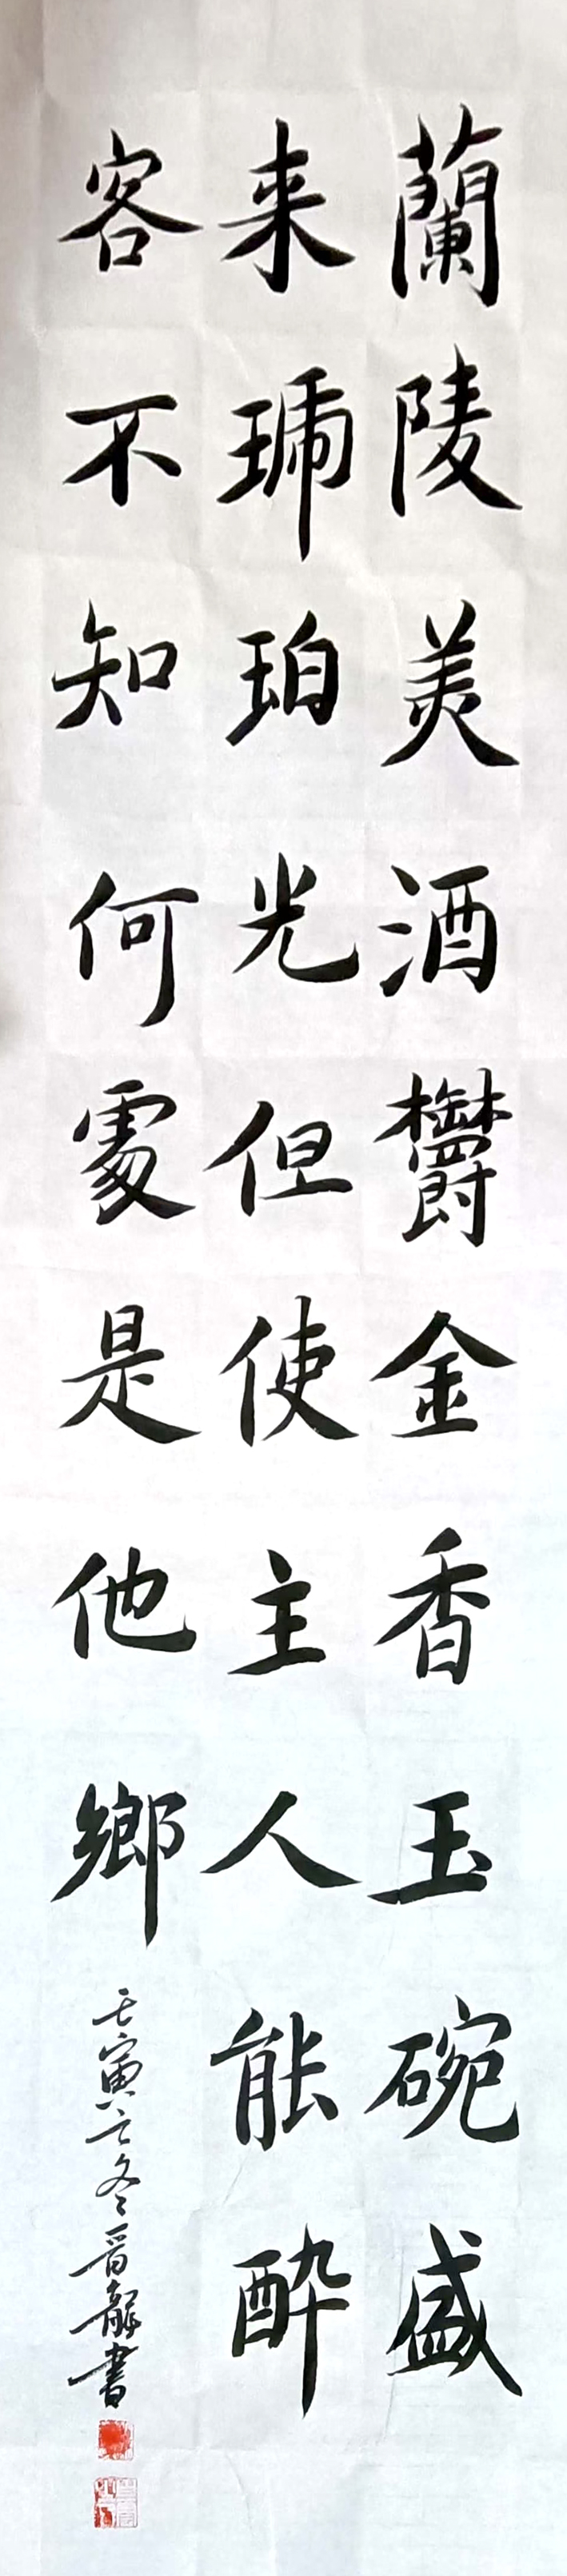 蘭陵美酒欝金香玉碗盛
来琥珀光但使主人能醉
客不知何處是他鄉
壬寅之冬晋龍書